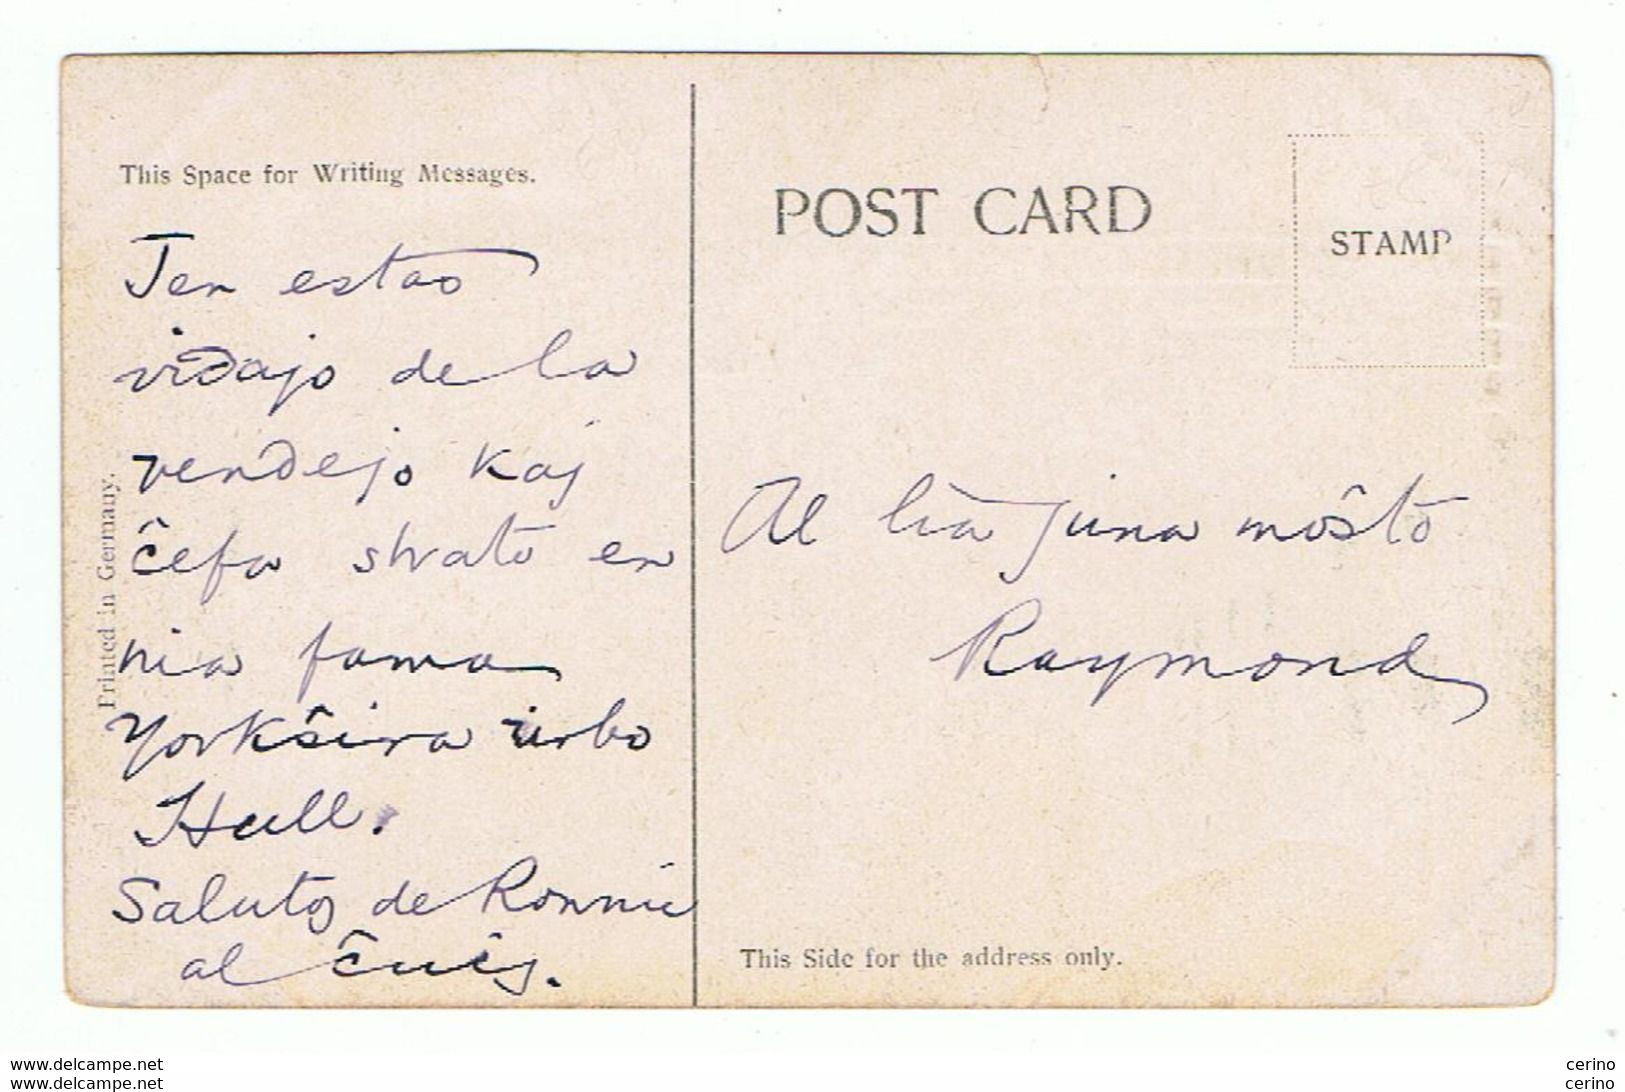 This Space for Writing Messages.
Jen estas
vidajo de la
vendejo kaj
ĉefa strato en
nia fama
Yorkŝira urbo
Hull.
Salutoj de Ronnie
al ĉiuj.
Printed in Germany.
POST CARD
STAMP
Al lia juna moŝto
Raymond
This Side for the address only.
delcampe.net
delcampe.net
cerino
cerino